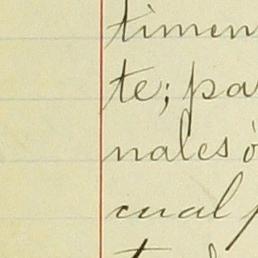 timen
te; pa
nales ó
cual p